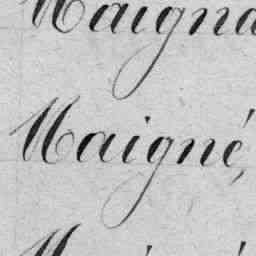 Maigna
Maigné,